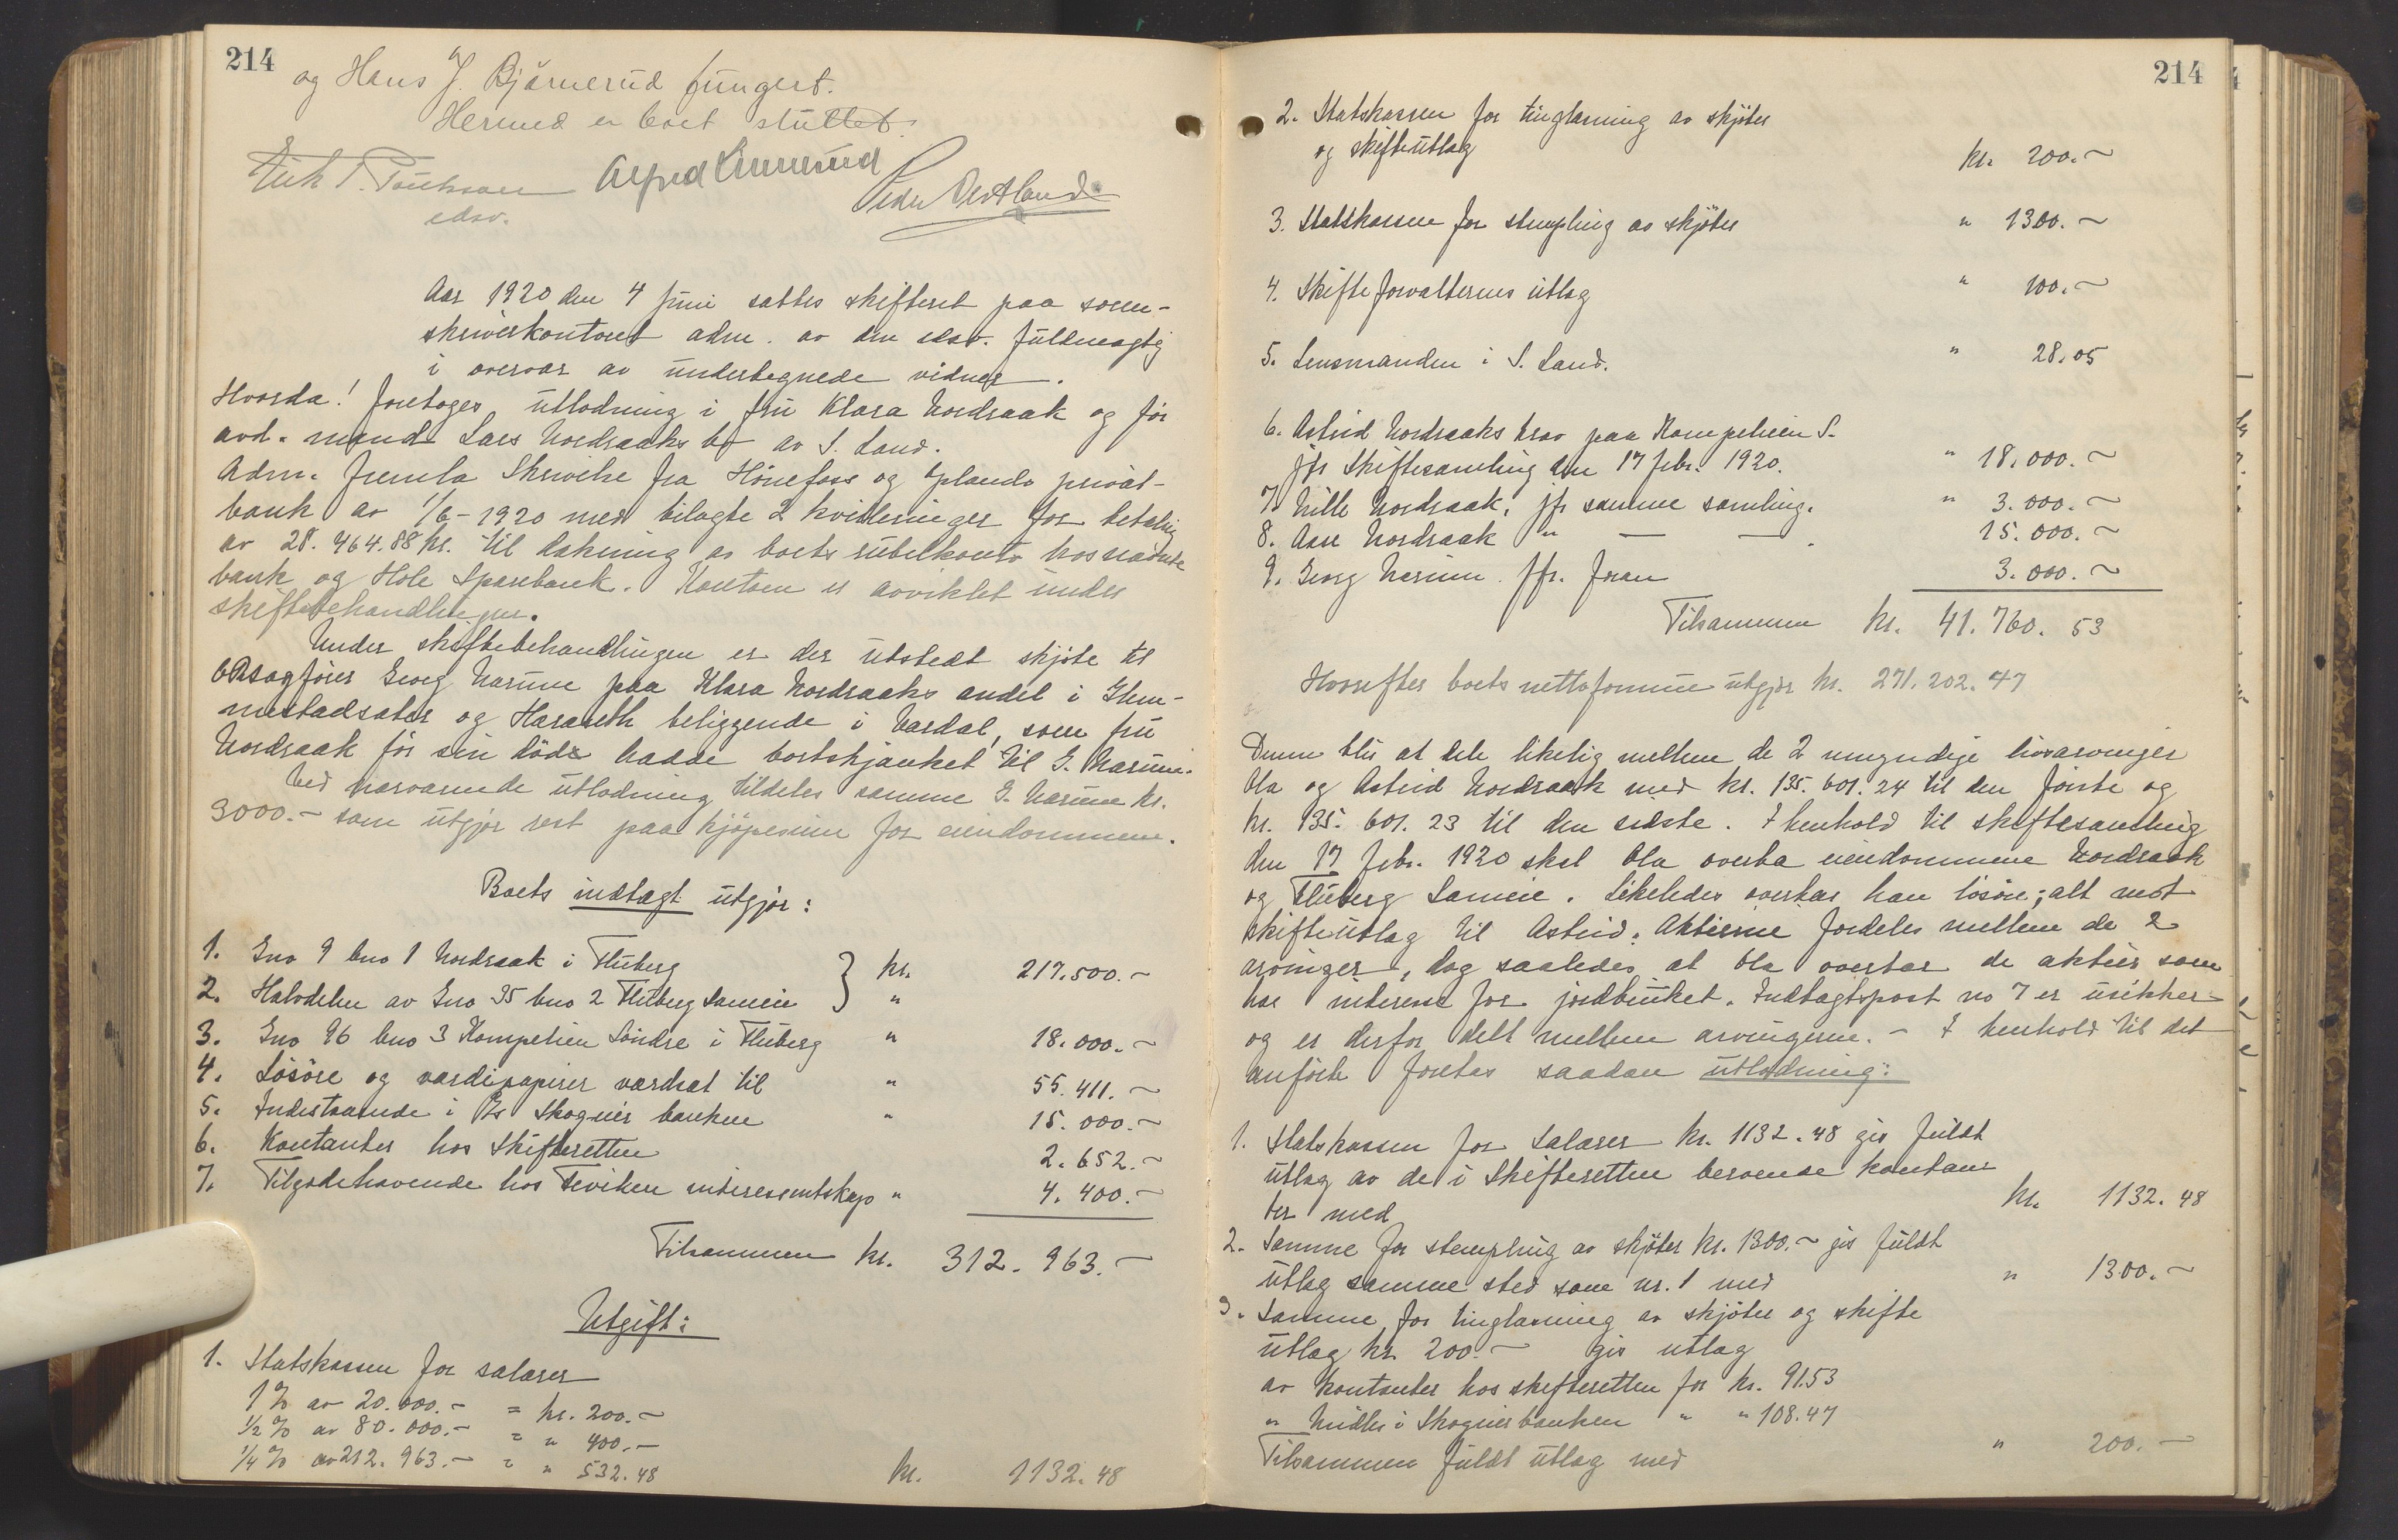 214
og Hans J. Bjørnerud fungert.
Hermed er boet sluttet.
Alfred
Peder Vestland
edsv.
Aar 1920 den 4 juni sattes skifteret paa soren-
skriverkontoret adm. av den edsv. fuldmægtig
i overvær av undertegnede vidner.
Hvorda! foretoges utlodning i fru Klara Nordraak og før
avd. mand Lars Nordraaks bo av S. Land.
Adm. fremla Skrivelse fra Hönefoss og Oplands privat-
bank av 1/6-1920 med bilagte 2 kvitteringer for betaling
av 28.464.88 kr. til dækning av boets rubelkonto hos nævnte
bank og Hole Sparebank. Kontoen er avviklet under
skiftebehandlingen.
Under skiftebehandlingen er der utstedt skjöte til
o.r.sagförer Georg Narum paa Klara Nordraaks andel i Glem-
mestadsæter og beliggende i Vardal, som fru
Nordraak för sin död hadde bortskjænket til G. Narum.
Ved nærværende utlodning tildeles samme G. Narum kr.
3000.- som utgjör rest paa kjöpesum for eiendommene.
Boets indtægt utgjör:
1. Gno 9 bno 1 Nordraak i Fluberg } kr. 217.500.-
2. Halvdelen av Gno 35 bno 2 Fluberg Sameie "
3. Gno 96 bno 3 Kompelien Söndre i Fluberg " 18.000.-
4. Lösöre og værdipapirer værdsat til " 55.411.-
5. Indestaaende i Skogeier banken " 15.000.-
6. Kontanter hos Skifteretten 2.652.-
7. Tilgodehavende hos Feviken interessentskap " 4.400.-
Tilsammen kr. 312.963.-
Utgift:
1. Statskassen for salærer
1 % av 20.000.- = kr. 200.-
1/2 % av 80.000.- = " 400.-
1/4 % av 212.963.- = " 532.48 kr. 1132.48
214
2. Statskassen for tinglæsning av skjöter
og skifteutlæg kr. 200.-
3. Statskassen for stempling av skjöter " 1300.-
4. Skifteforvalterens utlæg " 100.-
5. Lensmanden i S. Land. " 28.05
6. Astrid Nordraaks krav paa Kompelien S.
jfr Skiftesamling den 17 febr. 1920. " 18.000.-
7. Nille Nordraak, jfr samme samling. " 3.000.-
8. Aase Nordraak " — — . 15.000.-
9. Georg Narum. Jfr. foran 3.000.-
Tilsammen kr. 41.760.53
Hvorefter boets nettoformue utgjör kr. 271.202.47
Denne blir at dele likelig mellem de 2 umyndige livsarvinger
Ola og Astrid Nordraak med kr. 135.601.24 til den förste og
kr. 135.601.23 til den sidste. I henhold til skiftesamling
den 17 febr. 1920 skal Ola overta eiendommene Nordraak
og Fluberg Sameie. Likeledes overtar han lösöre; alt mot
skifteutlæg til Astrid. Aktierne fordeles mellem de 2
arvinger, dog saaledes at Ola overtar de aktier som
har interesse for jordbruket. Indtægtspost no 7 er usikker
og er derfor delt mellem arvingerne. - I henhold til det
anförte foretas saadan utlodning:
1. Statskassen for Salærer kr. 1132.48 gis fuldt
utlæg av de i Skifteretten beroende kontan-
ter med kr. 1132.48
2. Samme for stempling av skjöter kr. 1300.- gis fuldt
utlæg samme sted som nr. 1 med " 1300.-
3. Samme for tinglæsning av skjöter og skifte
utlæg kr. 200.- gis utlæg
av kontanter hos skifteretten for kr. 91.53
" Midler i Skogeierbanken " " 108.47
Tilsammen fuldt utlæg med " 200.-